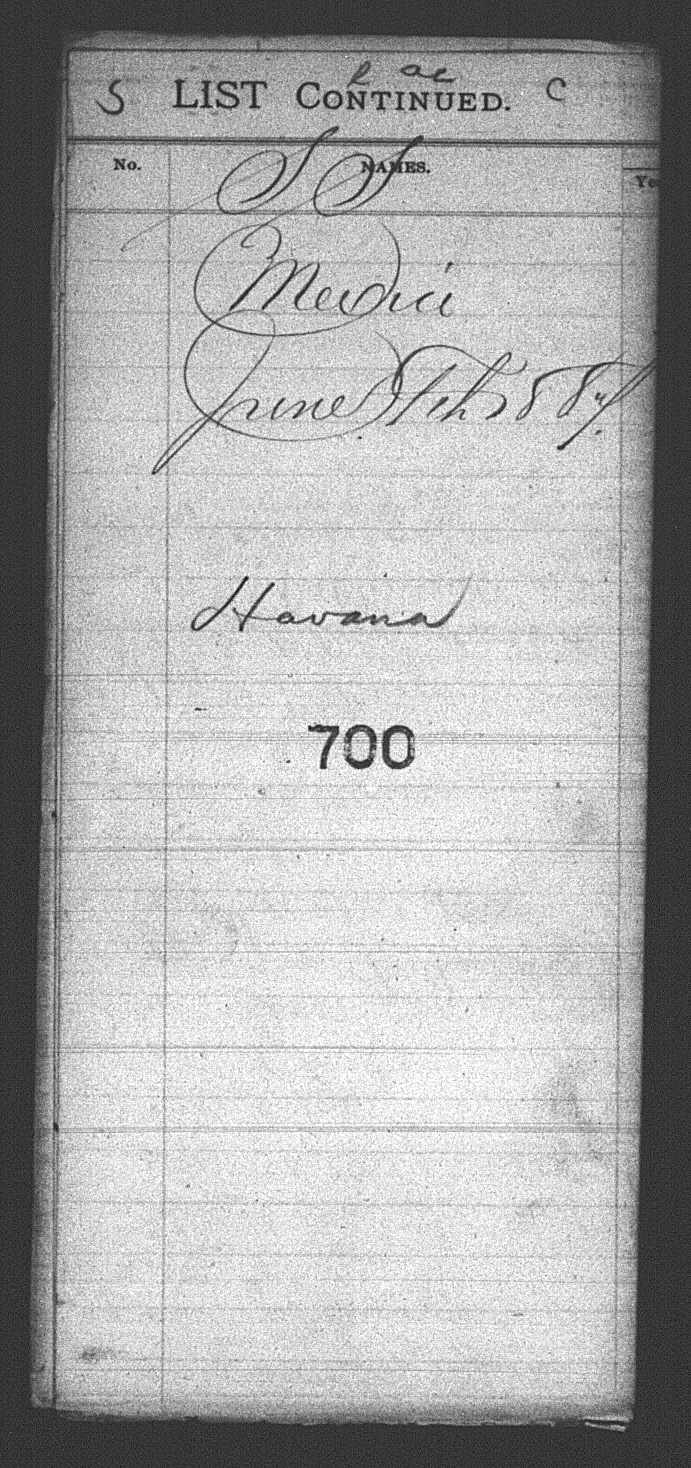 S LIST CONTINUED. C
No. NAMES.
S S
Medici
June Feb 1884.
Havana
700